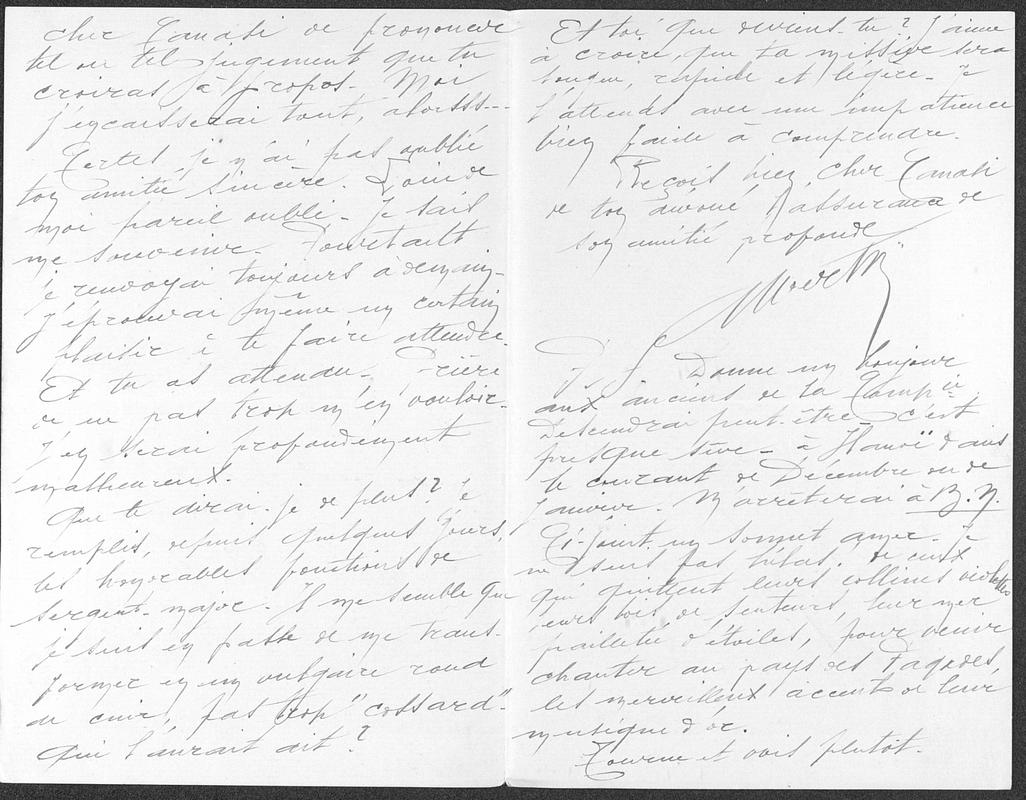 cher Canati de prononcer
tel ou tel jugement que tu
croiras à propos. Moi
j'encaisserai tout, alorsss...
Certes, je n'ai pas oublié
ton amitié sincère. Loin de
moi pareil oubli. Je sais
me souvenir. Pourtant
je renvoyai toujours à demain.
J'éprouvai même un certain
plaisir à te faire attendre.
Et tu as attendu. Prière
de ne pas trop m'en vouloir.
J'en serai profondément
malheureux.
Que te dirai-je de plus? Je
remplis, depuis quelques jours,
les honorables fonctions de
sergent-major. Il me semble que
je suis en passe de me trans-
former en un vulgaire rond
de cuir, pas trop "cossard".
Qui l'aurait dit?
Et toi que deviens-tu? J'aime
à croire que ta missive sera
longue, rapide et légère. Je
l'attends avec une impatience
bien facile à comprendre.
Reçois bien, cher Canati
de ton dévoué l'assurance de
son amitié profonde
P.S. Donne un bonjour
aux anciens de la Comp<sup>ie</sup>
Descendrai peut-être - c'est
presque sûr - à Hanoï dans
le courant de Décembre ou de
Janvier. M'arrêterai à B.N.
Ci-joint un sonnet amer. Je
ne suis pas hélas! de ceux
qui quittent leurs collines violettes
leurs bois de senteurs, leur mer
pailletée d'étoiles, pour venir
chanter au pays des Pagodes,
les merveilleux accents de leur
musique d'or.
Tourne et vois plutôt.